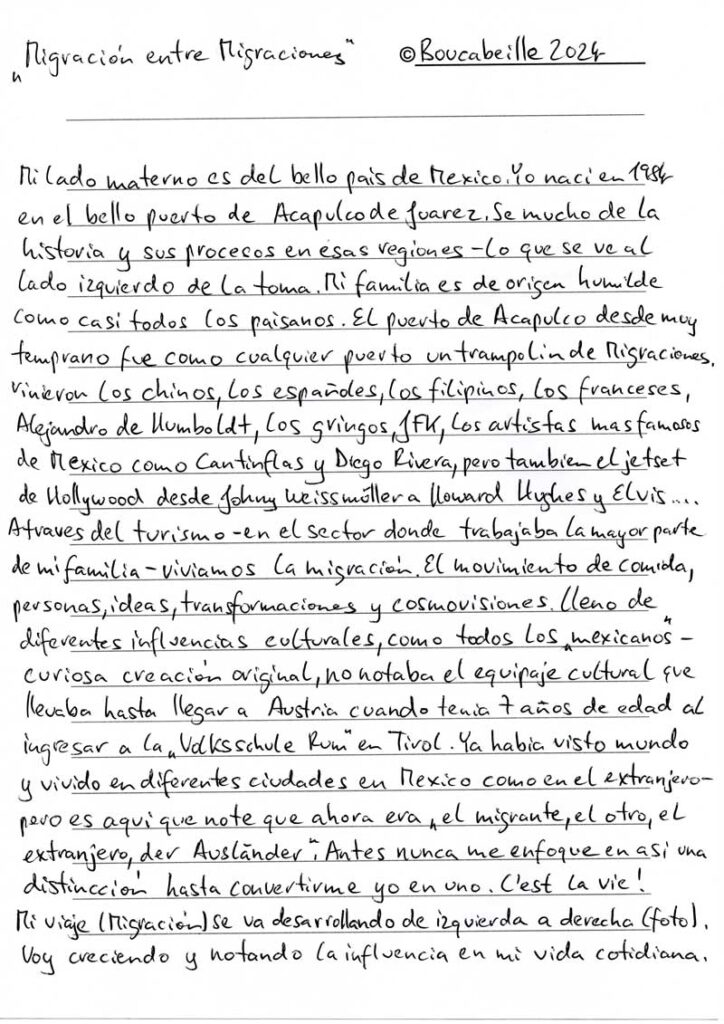 „Migración entre Migraciones“ ©Boucabeille 2024
Mi lado materno es del bello pais de Mexico. Yo naci en 1984
en el bello puerto de Acapulco de Juarez. Se mucho de la
historia y sus procecos en esas regiones - lo que se ve al
lado izquierdo de la toma. Mi familia es de origen humilde
como casi todos los paisanos. El puerto de Acapulco desde muy
temprano fue como cualquier puerto un trampolin de Migraciones.
Vinieron los chinos, los españoles, los filipinos, los franceses,
Alejandro de Humboldt, los gringos, JFK, los artistas mas famosos
de Mexico como Cantinflas y Diego Rivera, pero tambien el jetset
de Hollywood desde Johny Weissmüller a Howard Hughes y Elvis....
Atraves del turismo - en el sector donde trabajaba la mayor parte
de mi familia - viviamos la migración. El movimiento de comida,
personas, ideas, transformaciones y cosmovisiones. Lleno de
diferentes influencias culturales, como todos los „mexicanos“ -
curiosa creación original, no notaba el equipaje cultural que
llevaba hasta llegar a Austria cuando tenia 7 años de edad al
ingresar a la „Volksschule Rum“ en Tirol. Ya habia visto mundo
y vivido en diferentes ciudades en Mexico como en el extranjero-
pero es aqui que note que ahora era „el migrante, el otro, el
extranjero, der Ausländer“. Antes nunca me enfoque en asi una
distincción hasta convertirme yo en uno. C'est la vie!
Mi viaje (Migración) se va desarrollando de izquierda a derecha (foto).
Voy creciendo y notando la influencia en mi vida cotidiana.